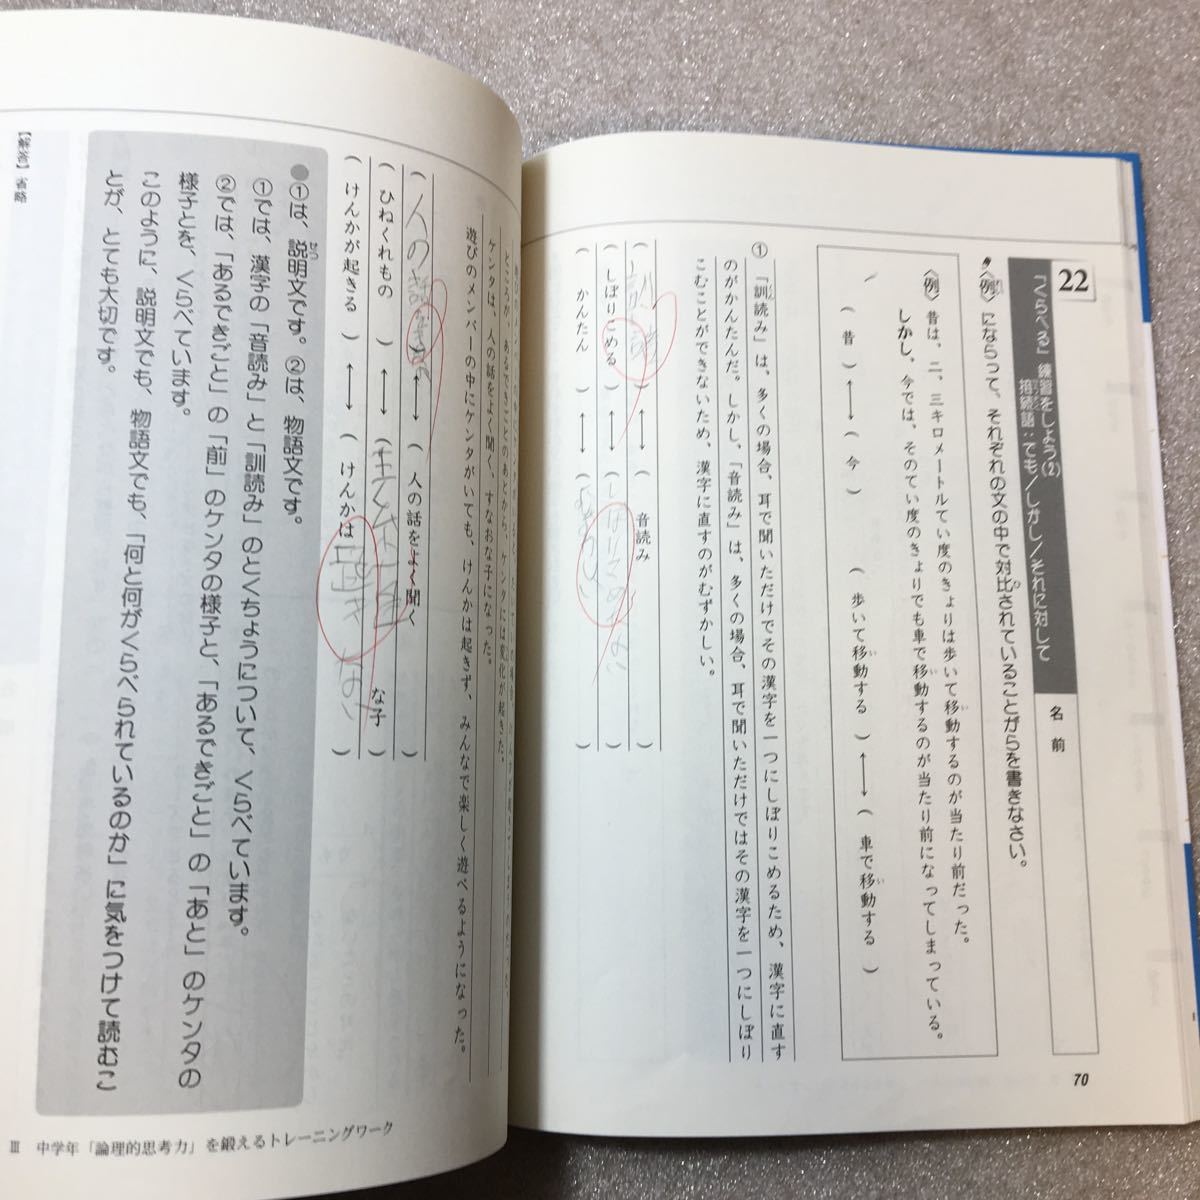 22
「くらべる」練習をしよう(2)
接続語：でも／しかし／それに対して
名前
〈例〉にならって、それぞれの文の中で対比されていることがらを書きなさい。
〈例〉昔は、二、三キロメートルてい度のきょりは歩いて移動するのが当たり前だった。
しかし、今では、そのてい度のきょりでも車で移動するのが当たり前になってしまっている。
（ 昔 ）←→（ 今 ）
（ 歩いて移動する ）←→（ 車で移動する ）
①「訓読み」は、多くの場合、耳で聞いただけでその漢字を一つにしぼりこめるため、漢字に直す
のがかんたんだ。しかし、「音読み」は、多くの場合、耳で聞いただけではその漢字を一つにしぼり
こむことができないため、漢字に直すのがむずかしい。
（訓読）←→（ 音読み ）
（ しぼりこめる ）←→（しぼりこめない）
（ かんたん ）←→（むずかしい）
70
ケンタは、人の話をよく聞く、すなお子になった。
遊びのメンバーの中にケンタがいても、けんかは起きず、みんなで楽しく遊べるようになった。
（人の話 ←→（ 人の話をよく聞く ）
（ ひねくれもの ）←→（ な子 ）
（ けんかが起きる ）←→（ けんかは起きない ）
●①は、説明文です。②は、物語文です。
①では、漢字の「音読み」と「訓読み」のとくちょうについて、くらべています。
②では、「あるできごと」の「前」のケンタの様子と、「あるできごと」の「あと」のケンタの
様子とを、くらべています。
このように、説明文でも、物語文でも、「何と何がくらべられているのか」に気をつけて読むこ
とが、とても大切です。
【解答】省略
Ⅲ 中学年「論理的思考力」を鍛えるトレーニングワーク